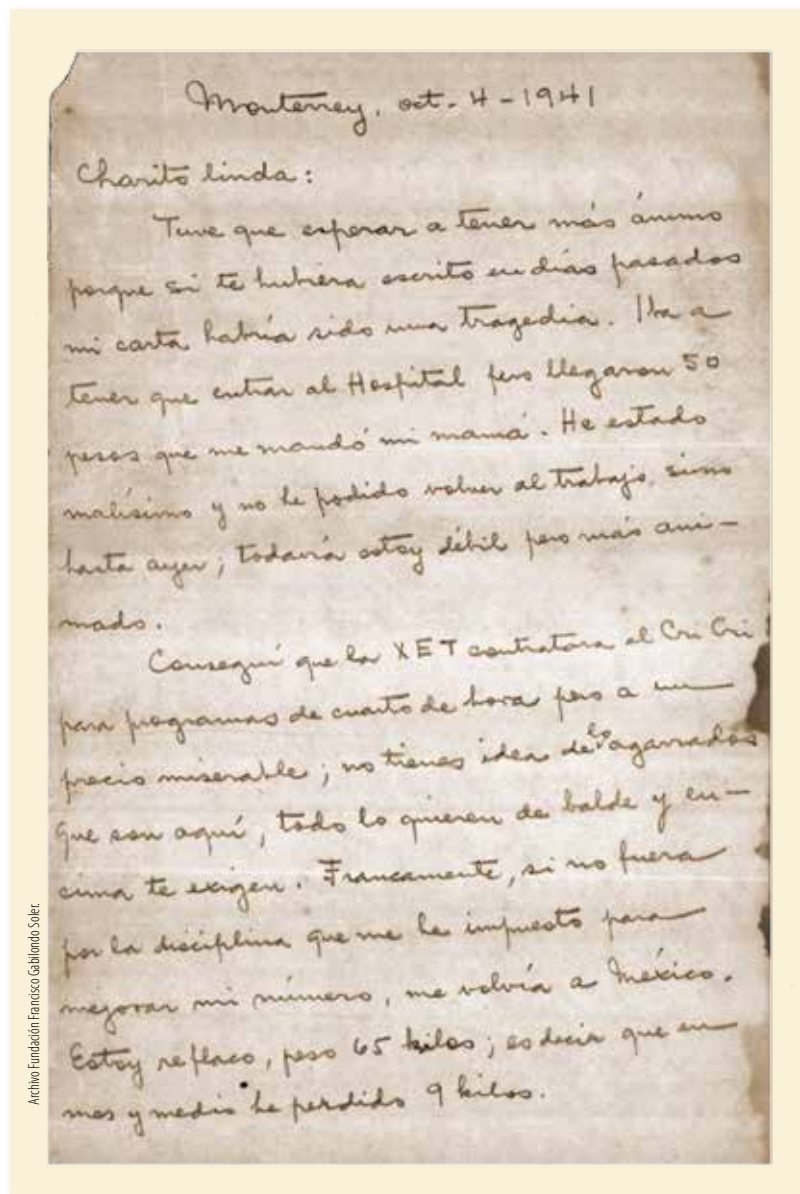 Monterrey, oct. 4 - 1941
Charito linda:
Tuve que esperar a tener más ánimo
porque si te hubiera escrito en días pasados
mi carta habría sido una tragedia. Iba a
tener que entrar al Hospital pero llegaron 50
pesos que me mandó mi mamá. He estado
malísimo y no he podido volver al trabajo sino
hasta ayer; todavía estoy débil pero más ani-
mado.
Conseguí que la XET contratara al Cri Cri
para programas de cuarto de hora pero a un
precio miserable; no tienes idea de lo agarrados
que son aquí, todo lo quieren de balde y en-
cima te exigen. Francamente, si no fuera
por la disciplina que me he impuesto para
mejorar mi número, me volvía a México.
Estoy reflaco, peso 65 kilos; es decir que en
mes y medio he perdido 9 kilos.
Archivo Fundación Francisco Gabilondo Soler.